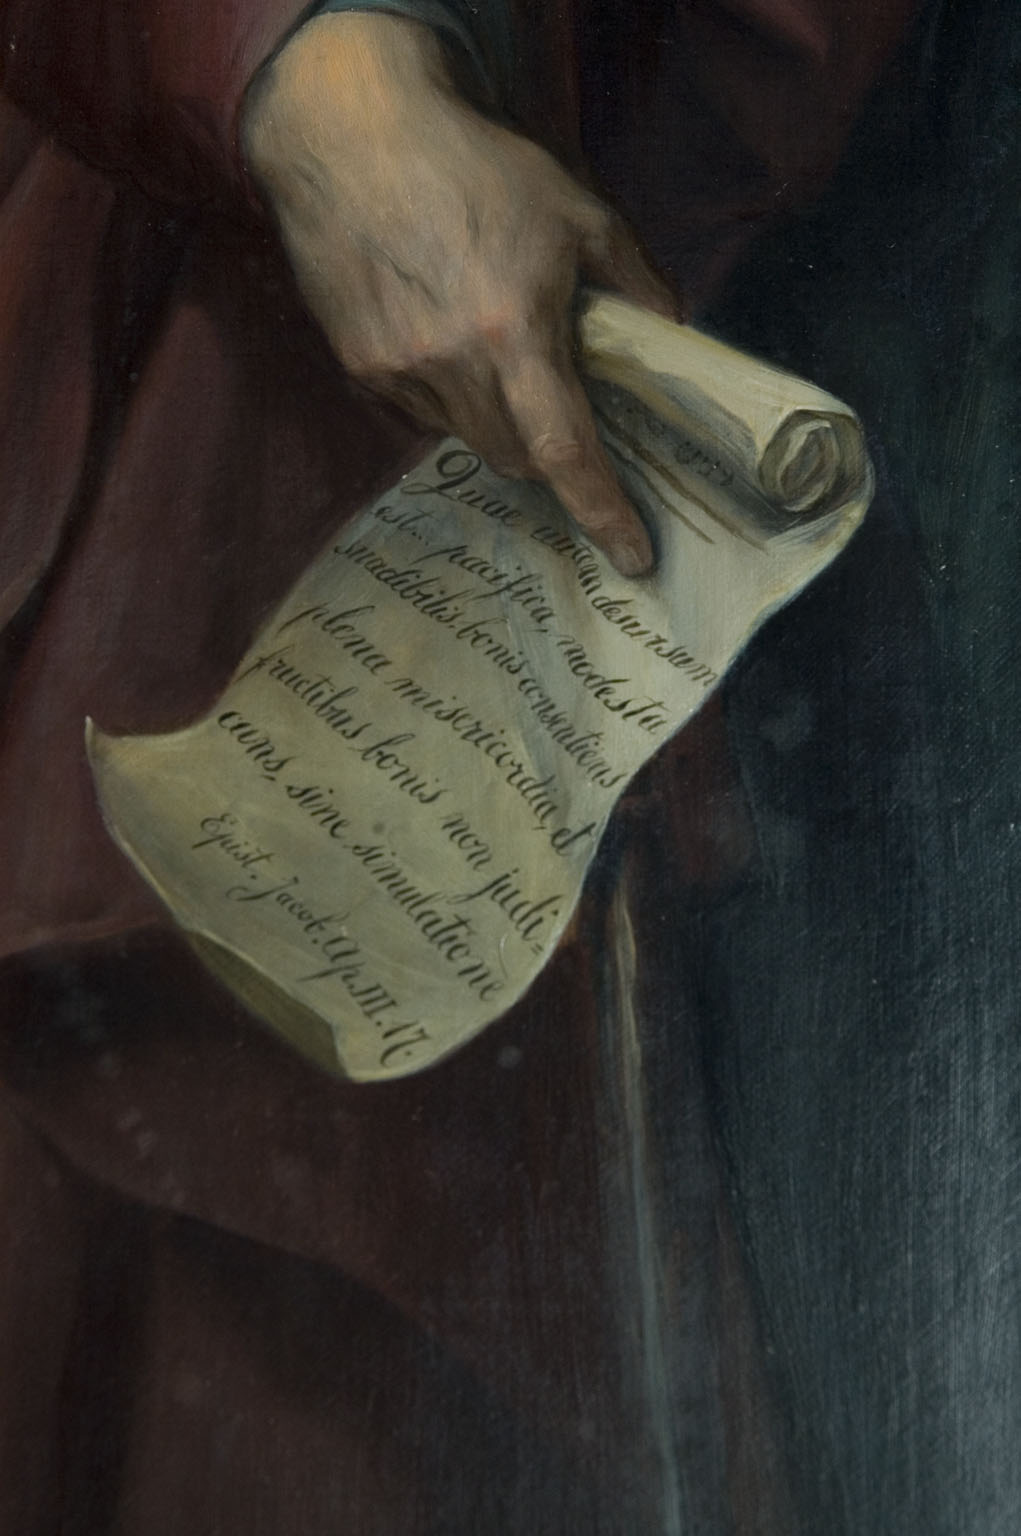 Quae autem desursum
est... pacifica, modesta
suadibilis, bonis consentiens
plena misericordia, et
fructibus bonis non judi=
cans, sine simulatione
Epist. Jacob. Ap. III. 17.